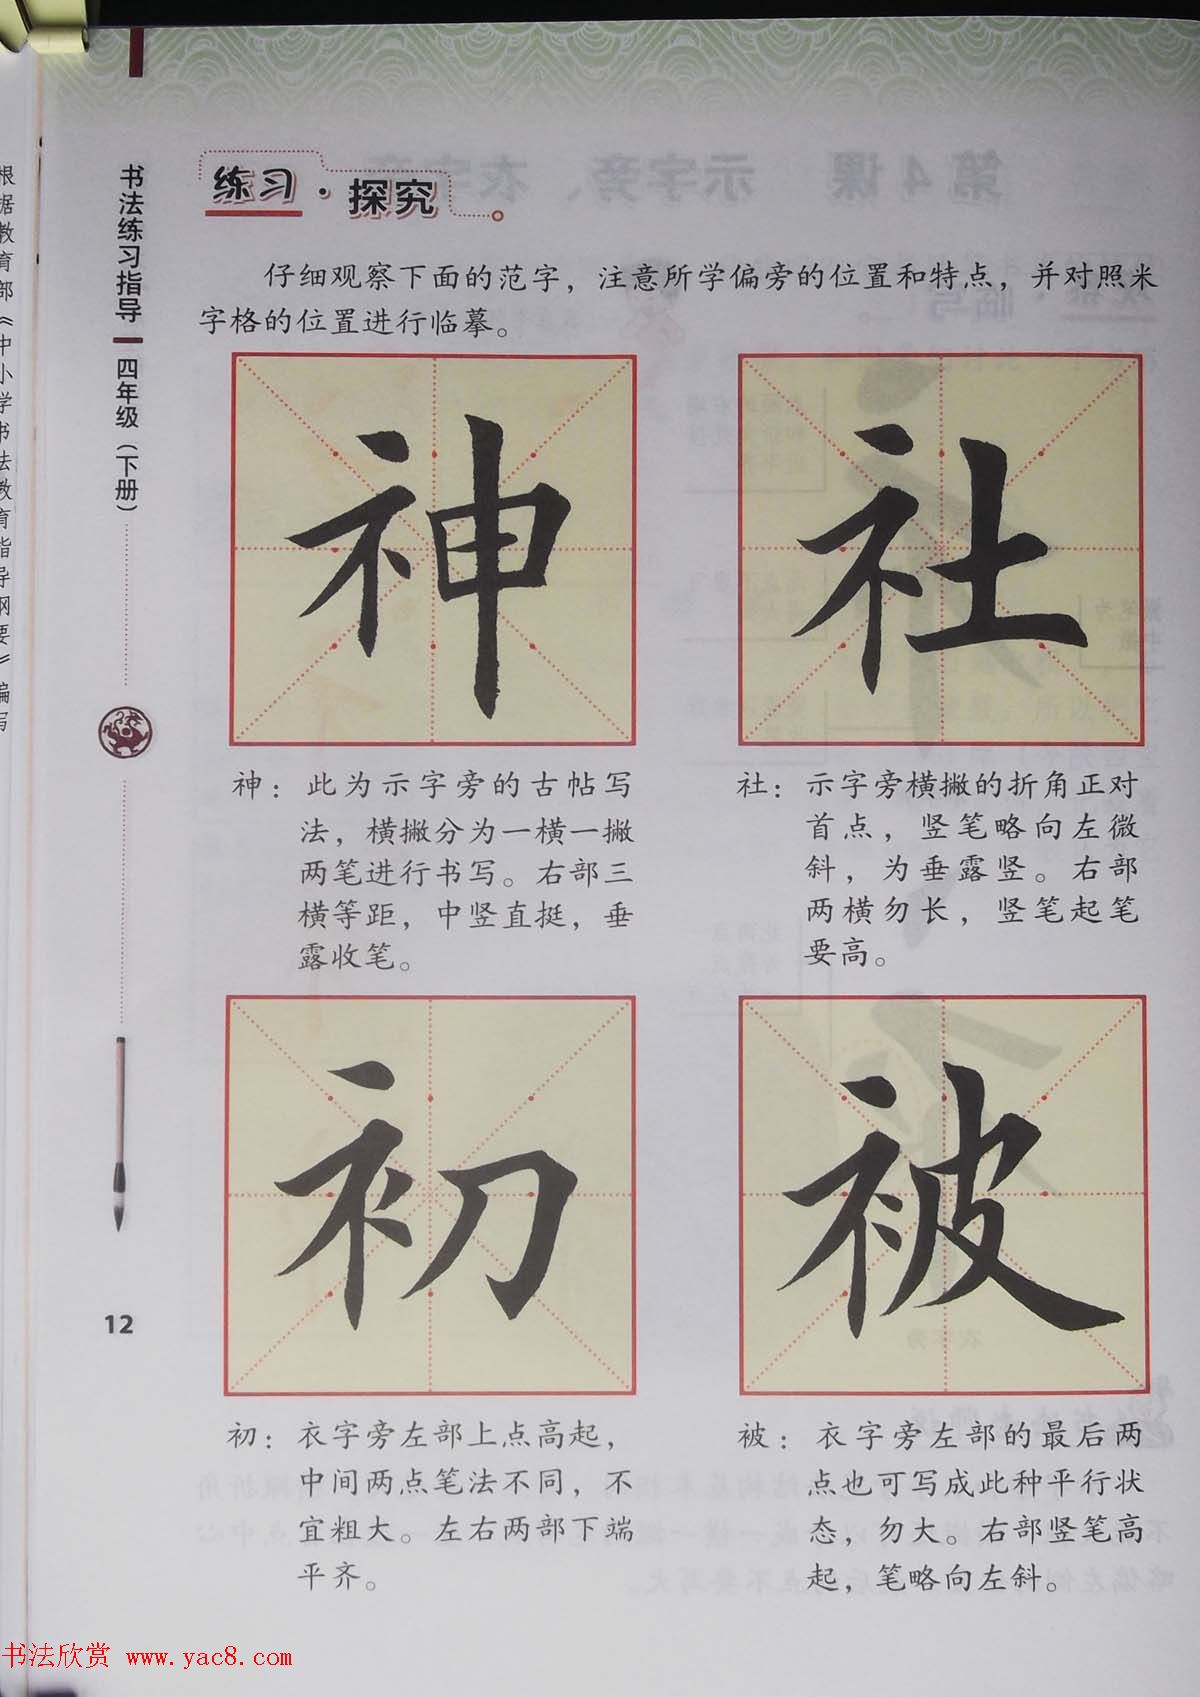 练习·探究
仔细观察下面的范字，注意所学偏旁的位置和特点，并对照米
字格的位置进行临摹。
神
社
神：此为示字旁的古帖写
法，横撇分为一横一撇
两笔进行书写。右部三
横等距，中竖直挺，垂
露收笔。
社：示字旁横撇的折角正对
首点，竖笔略向左微
斜，为垂露竖。右部
两横勿长，竖笔起笔
要高。
初
被
初：衣字旁左部上点高起，
中间两点笔法不同，不
宜粗大。左右两部下端
平齐。
被：衣字旁左部的最后两
点也可写成此种平行状
态，勿大。右部竖笔高
起，笔略向左斜。
书法练习指导
四年级（下册）
12
根据教育部《中小学书法教育指导纲要》编写
书法欣赏 www.yac8.com